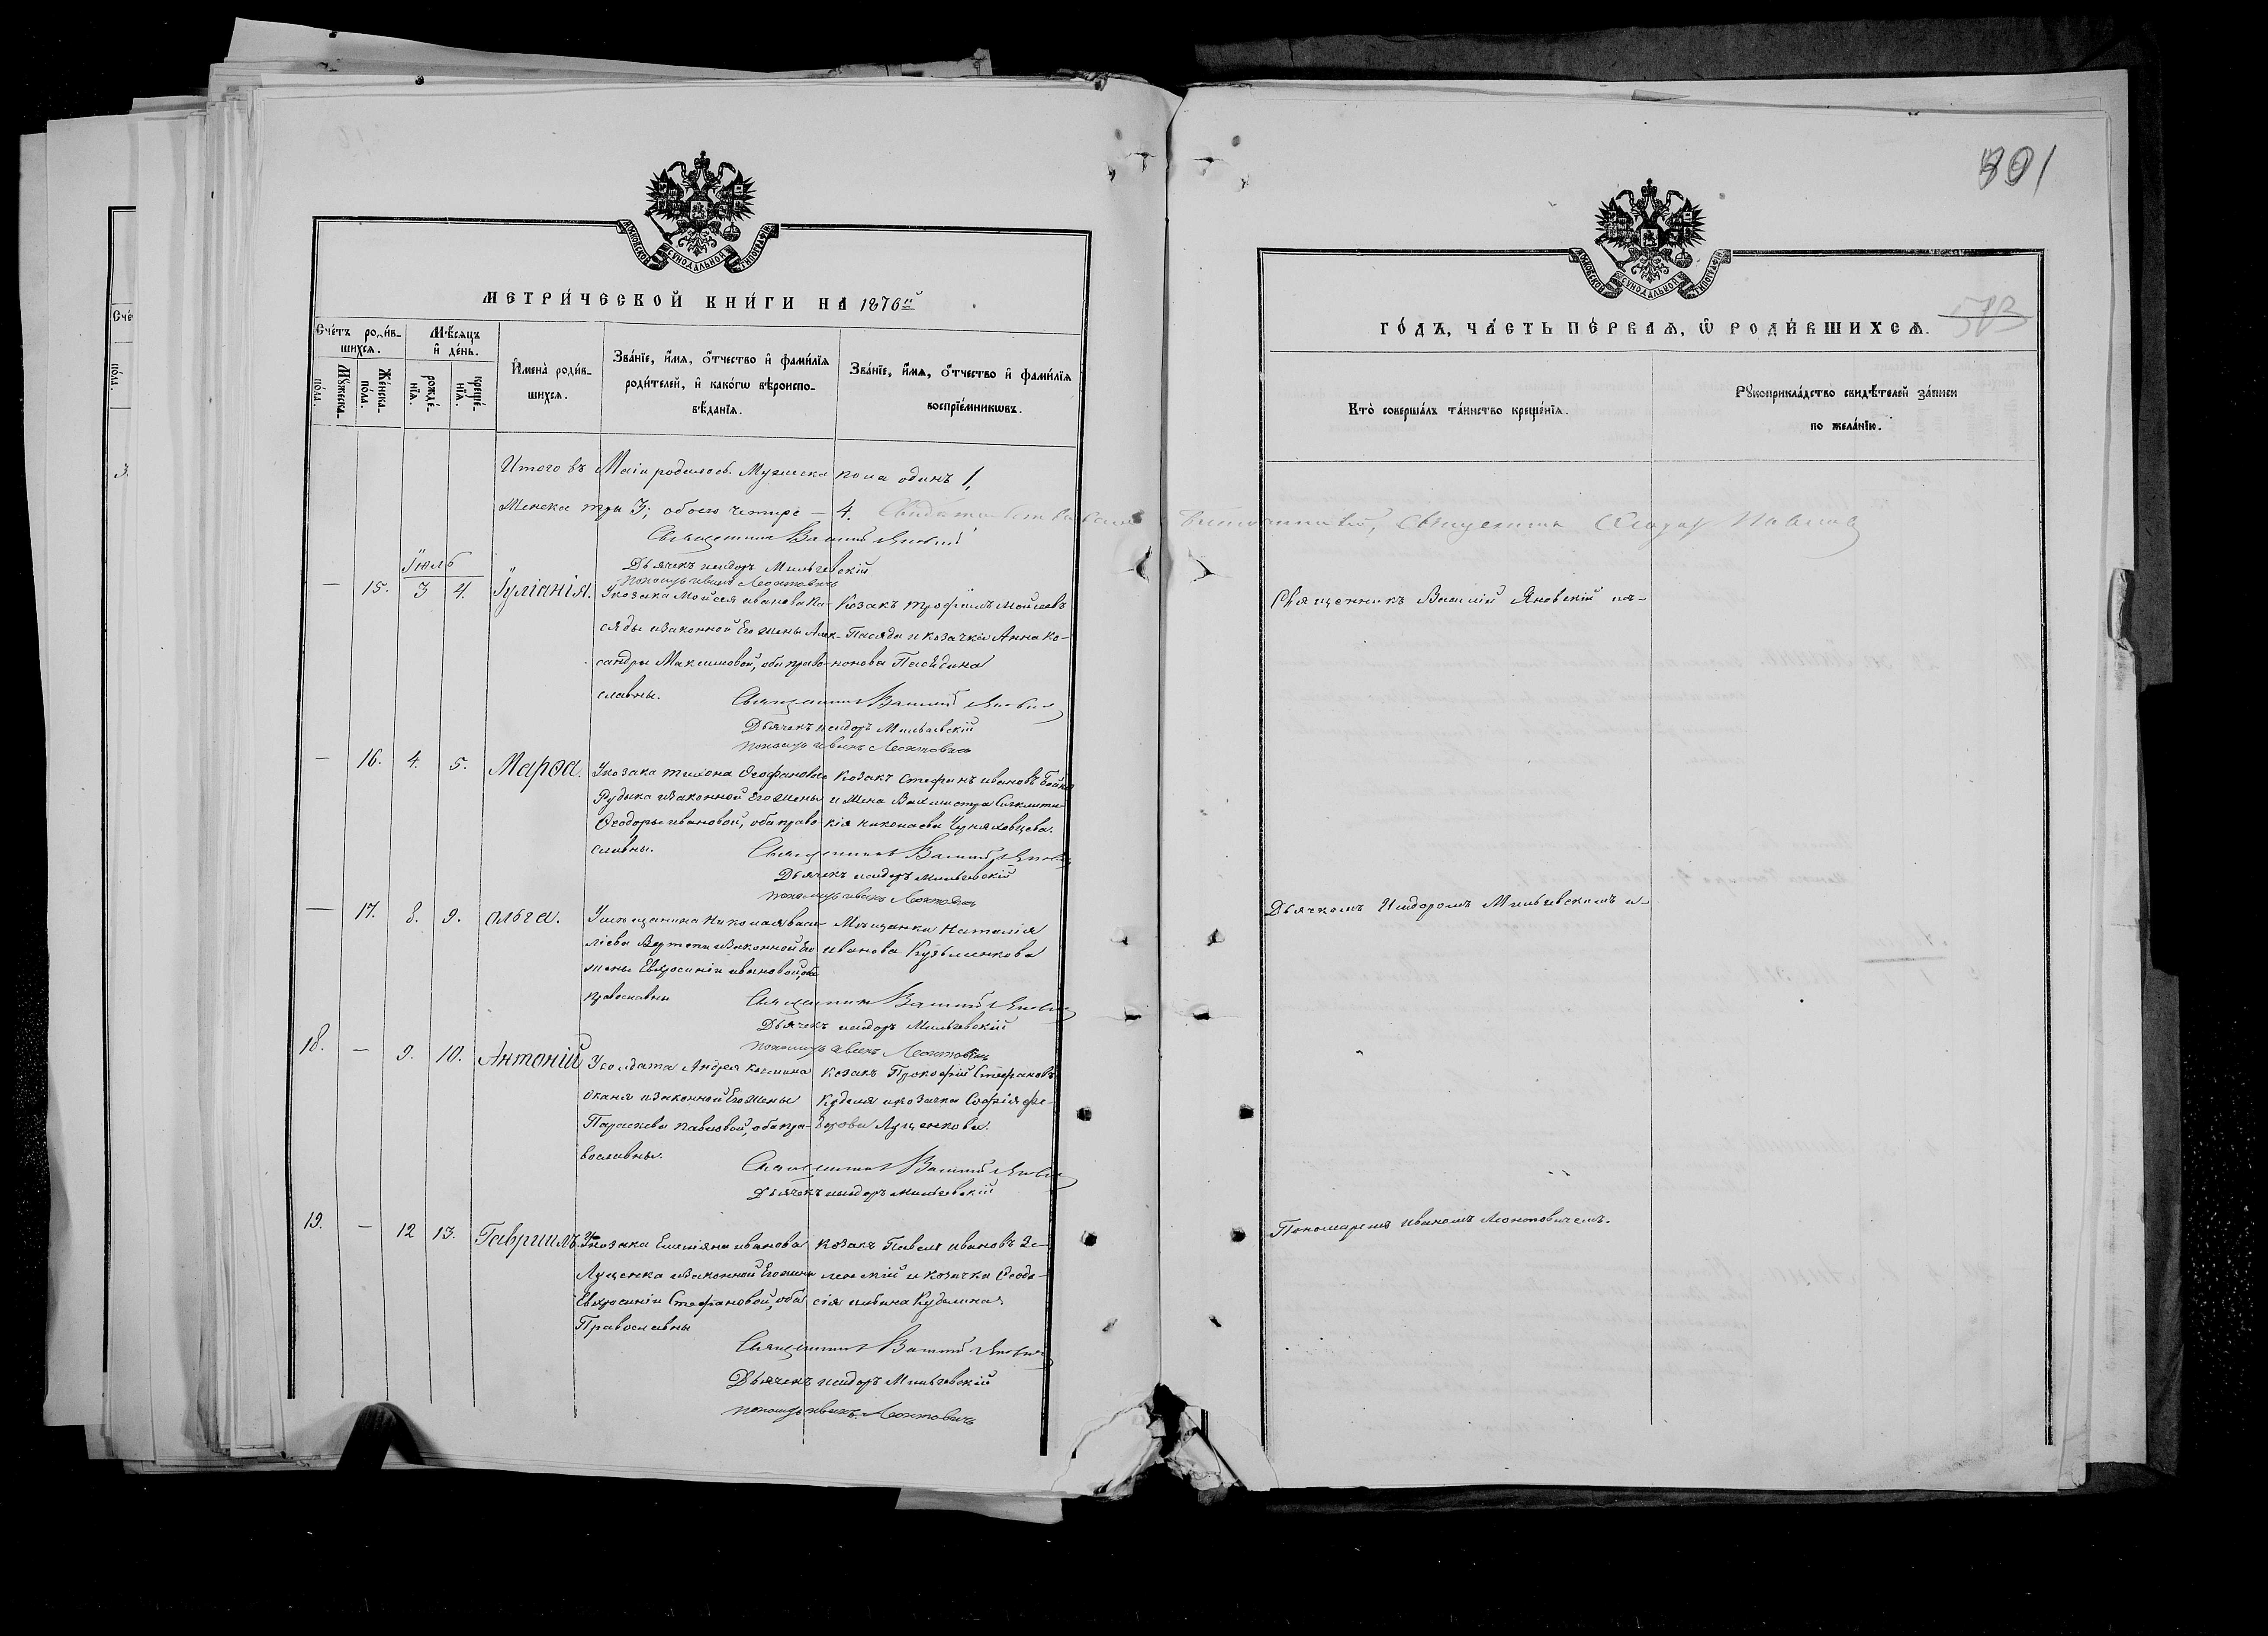 801
МОСКОВСКОЙ СѴНОДАЛЬНОЙ ТИПОГРАФІИ
МЕТРИ́ЧЕСКОЙ КНИ́ГИ НА 1876й
Сче́тъ роди́в-
шихся.
Мѣ́сяцъ
и҆ де́нь.
Мꙋ́жеска
по́ла.
Же́нска
по́ла.
рожде́-
нїя.
креще́-
нїя.
И҆мена̀ роди́в-
шихся.
Зва́нїе, и҆́мя, ѻ҆́тчество и҆ фами́лїя
роди́телей, и҆ како́гѡ вѣроиспо-
вѣ́данїя.
Зва́нїе, и҆́мя, ѻ҆́тчество и҆ фами́лїя
воспрїе́мникѡвъ.
Итого въ Маіи родилось Мужеска пола одинъ 1,
Женска три 3; обоего четыре — 4.
Священникъ Василій Яновскій
Дьячекъ Исидоръ Мильчевскій
Пономарь Иванъ Леонтовичъ
Іюль
— 15. 3 4. Іуліанія.
У козака Мойсея Иванова Па-
сяды и законной Его жены Алек-
сандры Максимовой, оба право-
славны.
Козакъ Трофимъ Мойсеевъ
Пасяда и козачка Анна Ко-
нонова Пасядина
Священникъ Василій Яновскій
Дьячекъ Исидоръ Мильчевскій
Пономарь Иванъ Леонтовичъ
— 16. 4. 5. Марѳа.
У козака Тихона Ѳеофанова
Рудыка и законной Его жены
Ѳеодоры Ивановой, оба право
славны.
Козакъ Стефанъ Ивановъ Бойко
и Жена Вахмистра
Николаева
Священникъ Василій Яновскій
Дьячекъ Исидоръ Мильчевскій
Пономарь Иванъ Леонтовичъ
— 17. 8. 9. Ольга.
У мѣщанина Николая Васи-
ліева и законной Его
жены Евфросиніи Ивановой, оба
православны
Мѣщанка Наталія
Иванова Кузьменкова
Священникъ Василій Яновскій
Дьячекъ Исидоръ Мильчевскій
Пономарь Иванъ Леонтовичъ
18. — 9. 10. Антоній
У солдата Андрея
и законной Его жены
Параскевы Павловой, оба пра-
вославны.
Козакъ Прокофій Стефановъ
и козачка Софія Ѳе-
дорова Луценкова.
Священникъ Василій Яновскій
Дьячекъ Исидоръ Мильчевскій
19. — 12 13. Гавриилъ.
У козака Емиліяна Иванова
Луценка и законной Его жены
Евфросиніи Стефановой, оба
Православны
Козакъ Павелъ Ивановъ Зе-
ленскій и козачка Ѳеодо-
сія Ильина
Священникъ Василій Яновскій
Дьячекъ Исидоръ Мильчевскій
Пономарь Иванъ Леонтовичъ
МОСКОВСКОЙ СѴНОДАЛЬНОЙ ТИПОГРАФІИ
573
ГО́ДЪ, ЧА́СТЬ ПЕ́РВАЯ, Ѽ РОДИ́ВШИХСЯ.
Кто̀ соверша́лъ та́инство креще́нїя.
Рꙋкоприкла́дство свидѣ́телей за́писи
по жела́нїю.
Священникъ Василій Яновскій съ-
Дьячкомъ Исидоромъ Мильчевскимъ и-
Пономаремъ Иваномъ Леонтовичемъ.